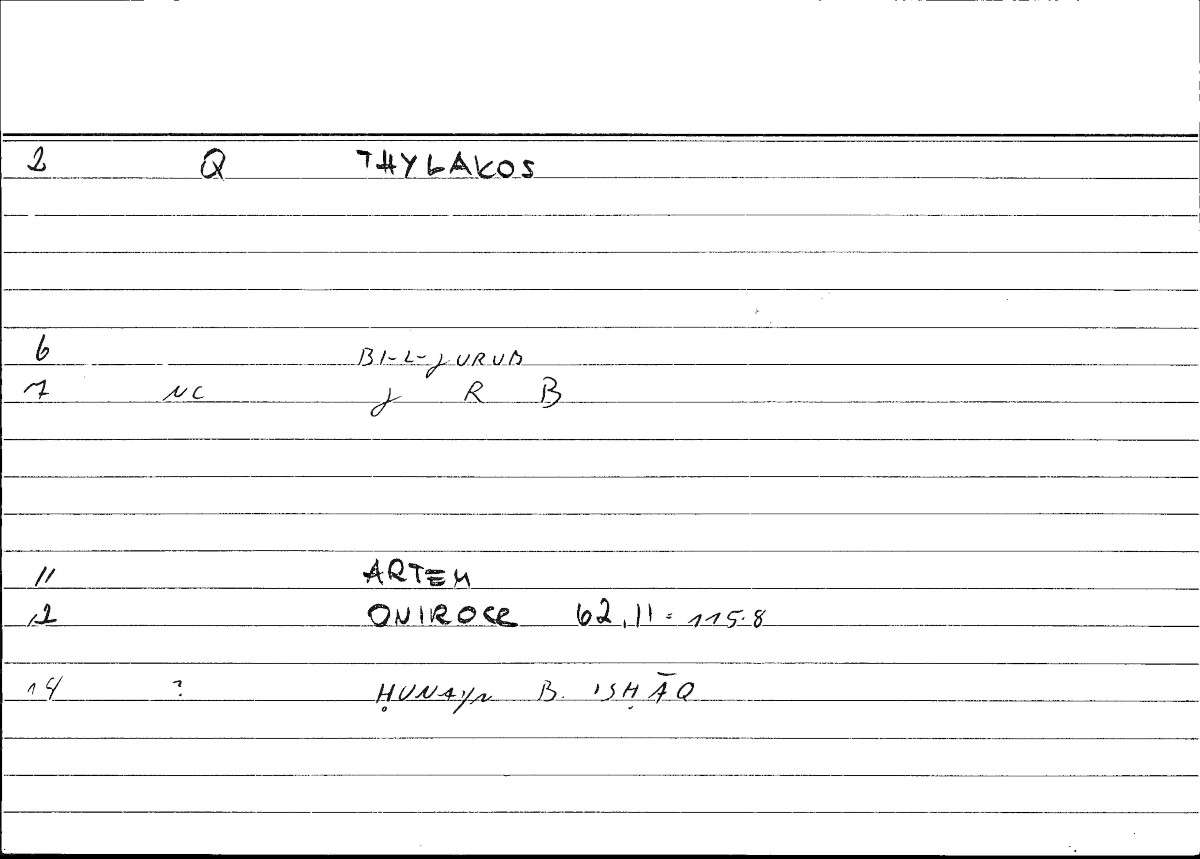 2 Q THYLAKOS
6 BI-L-JURUB
7 NC J R B
11 ARTEM
12 ONIROCR 62,11 = 115.8
14 ? ḤUNAYN B. ISḤĀQ